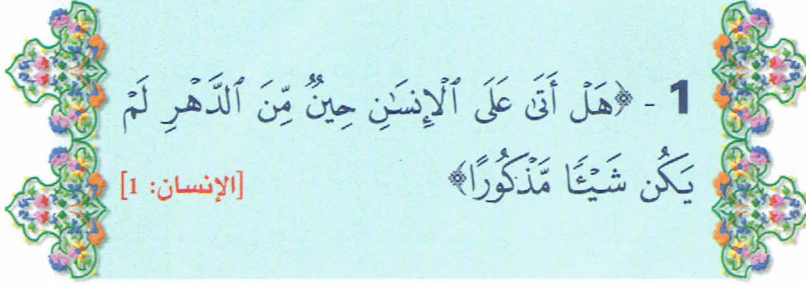 1 - ﴿هَلْ أَتَىٰ عَلَى ٱلْإِنسَٰنِ حِينٌ مِّنَ ٱلدَّهْرِ لَمْ
يَكُن شَيْـًٔا مَّذْكُورًا﴾ [الإنسان: 1]